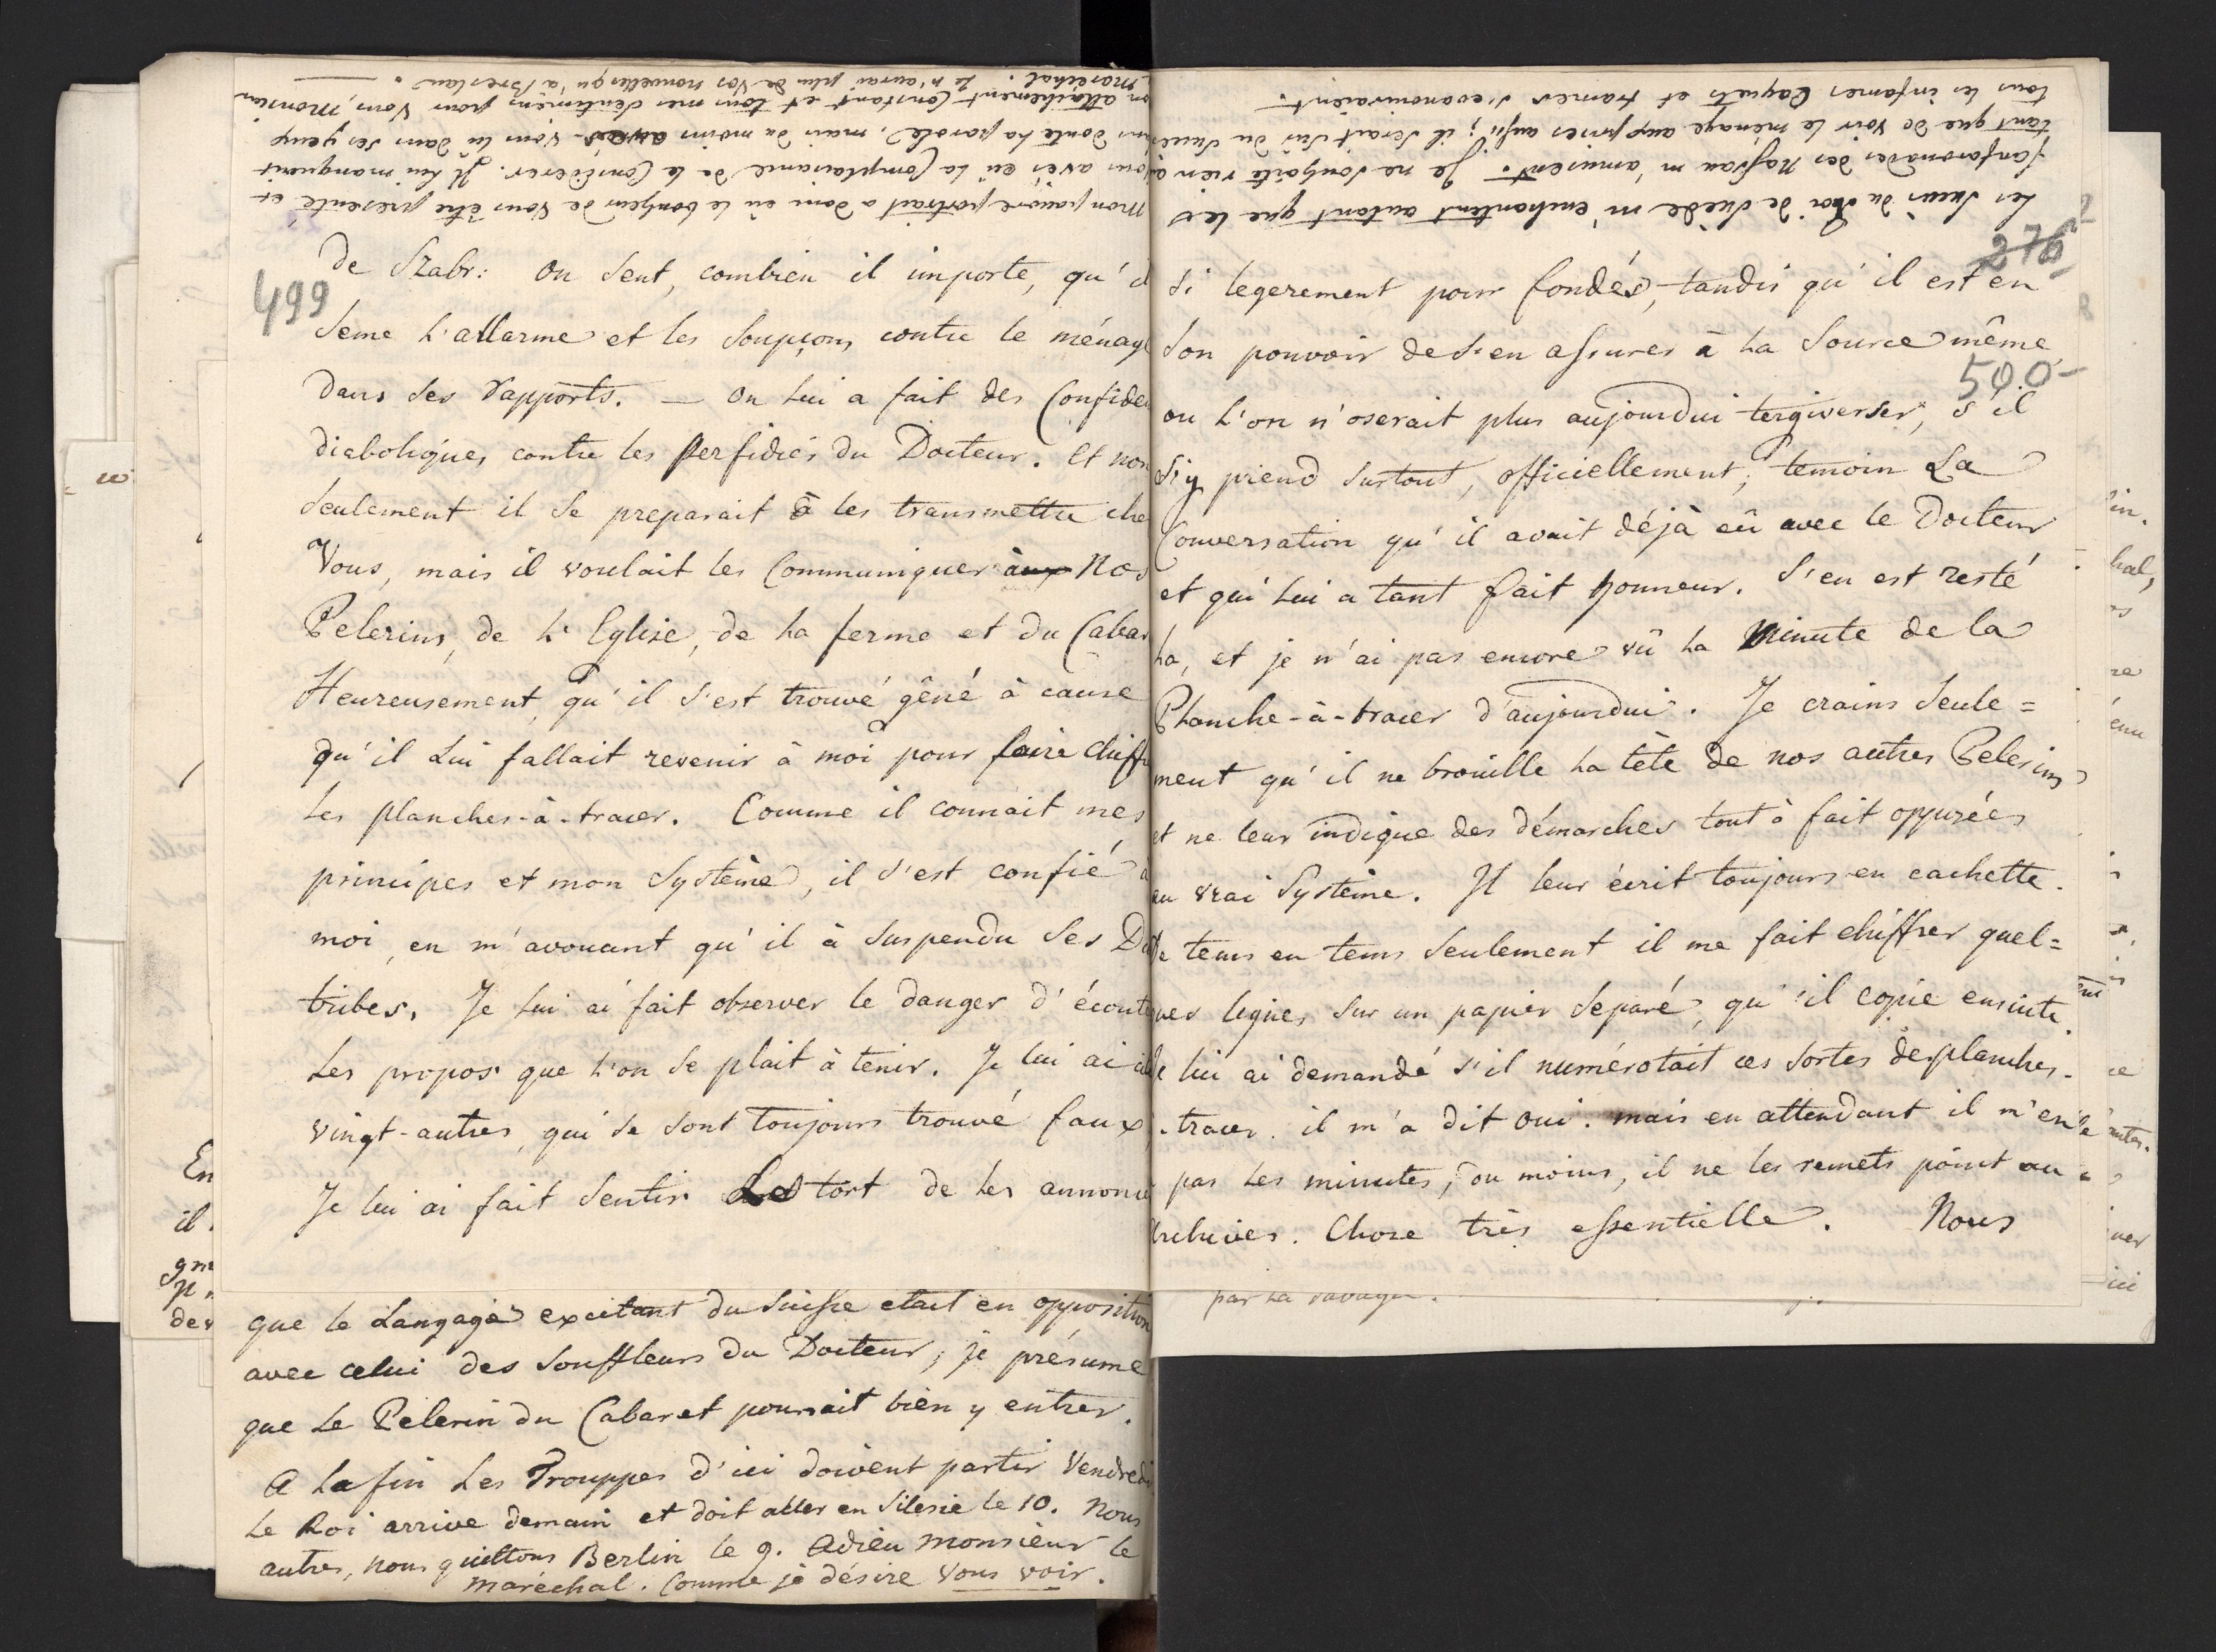 Mon pauvre portrait a donc eû le bonheur de vous être presenté et
vous avés eû la complaisance de le considerer. Il lui manquait
sans doute la parole, mais du moins avés-vous lû dans ses yeux
mon attachement constant et tous mes sentimens pour vous, Monsieur
maréchal. Je n'aurai plus de vos nouvelles qu'à Breslau.
499
de Szabr: on sent, combien il importe, qu'il
seme l'allarme et les soupçons contre le ménage
dans ses rapports. — on lui a fait des Confiden
diaboliques contre les perfidies du Docteur. et non
seulement il se preparait à les transmettre che
Vous, mais il voulait les communiquer aux Nos
Pelerins, de l'Eglise, de la ferme et du Cabar
Heureusement, qu'il s'est trouvé gêné à cause
qu'il lui fallait revenir à moi pour faire chiff
les planches-à-tracer. Comme il connait mes
principes et mon systême, il s'est confié à
moi, en m'avouant qu'il à suspendu ses Dia
tribes. Je lui ai fait observer le danger d'écoute
les propos que l'on se plait à tenir. Je lui ai
vingt-autres, qui se sont toujours trouvé faux,
Je lui ai fait sentir Le tort de les annonce
que le Langage excitant du Suisse etait en opposition
avec celui des souffleurs du Docteur, je présume
que le Pelerin du Cabaret pourrait bien y entrer.
A la fin les Trouppes d'ici doivent partir Vendredi
Le Roi arrive demain et doit aller en Silesie le 10. Nous
autres, nous quittons Berlin le 9. Adieu monsieur le
maréchal. Comme je désire vous voir.
Les succès du Roi de Suède m'enchantent autant que les
fanfaronades des Nassau m'amusent. Je ne souhaite rien
tant que de voir le ménage aux prises aussi; il serait sûr du succès
tous les infames caquets et trames s'evanouiraient.
276
si legerement pour fondés, tandis qu'il est en
son pouvoir de s'en assurer à la source même,
500
ou l'on n'oserait plus aujourdui tergiverser, s'il
s'y prend surtout, officiellement; temoin La
Conversation qu'il avait déjà eû avec le Docteur
et qui lui a tant fait honneur. S'en est resté
la, et je n'ai pas encore vû la Minute de la
Planche-à-tracer d'aujourdui. Je crains seule=
ment qu'il ne brouille la tête de nos autres Pelerins
et ne leur indique des démarches tout à fait opposées
au vrai Systême. Il leur écrit toujours en cachette.
De tems en tems seulement il me fait chiffrer quel=
ques lignes sur un papier separé, qu'il copie ensuite.
Je lui ai demandé s'il numérotait ces sortes de planches-
-tracer. il m'a dit oui. mais en attendant il n'en
pas les minutes, ou moins, il ne les remets point au
Archives. Chose très essentielle. Nous